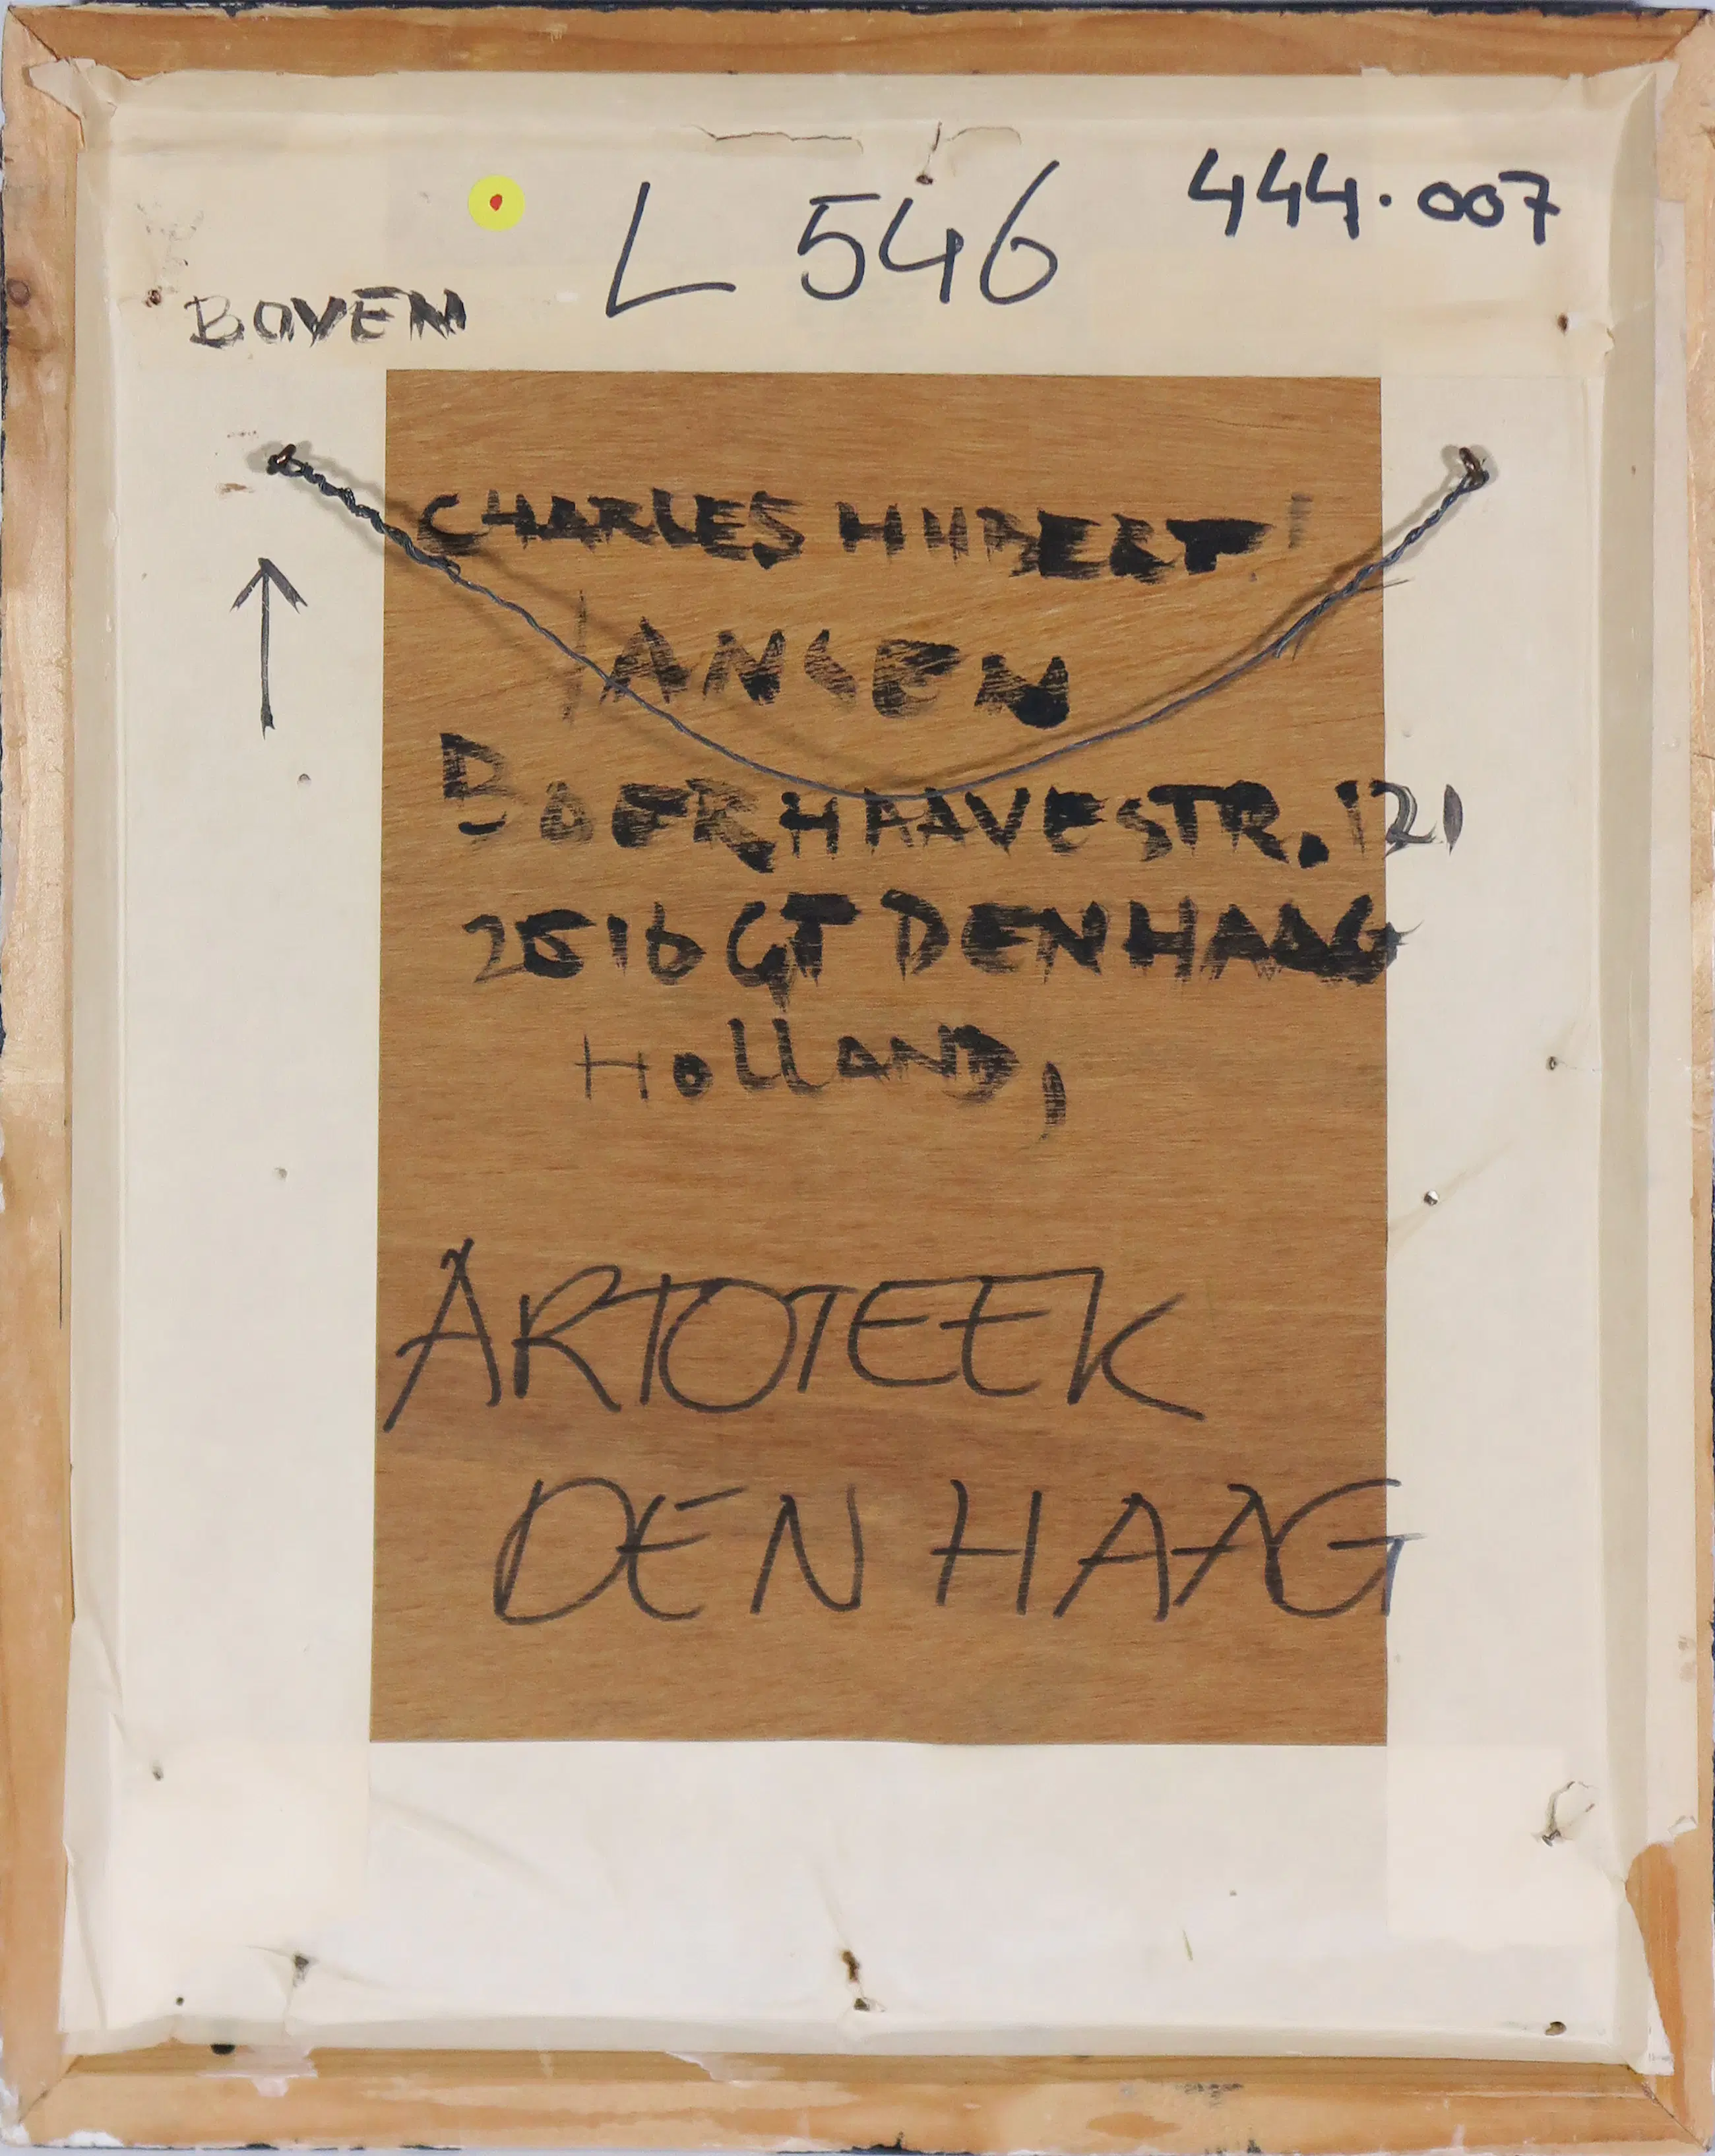 L 546
444.007
BOVEN
CHARLES HUBERT
JANSEN
BOERHAAVESTR. 121
2516 GT DEN HAAG
HOLLAND,
ARTOTEEK
DEN HAAG